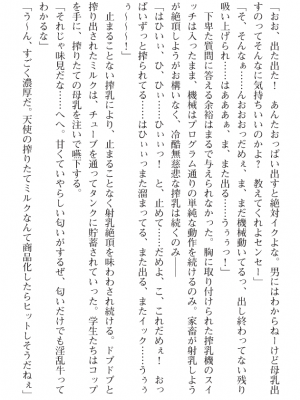 「おお、出た出た！　あんたおっぱい出すと絶対イクよな。男にはわからねーけど母乳出
すのってそんなに気持ちいいのか？　教えてくれよセンセー」
「そ、そんなぁ……おおおっだめぇ、ま, まだ機械動いてるっ、出し終わってない残り
吸い上げられ……はあああぁ、ま、また出る……うぅぅっ！」
　下卑た質問に答える余裕はまるで与えられなかった。胸に取り付けられた搾乳機のスイ
ッチは入ったまま、機械はプログラム通りの単純な動作を続けるのみ。家畜が射乳しよう
が絶頂しようがお構いなく、冷酷無慈悲な搾乳は続くのみ――
「はひぃ、ひ、ひぃ……ひぃぃっ！　と、止めて……だめよ、こ、これだめぇ！　おっ
ぱいずっと搾られてる……はひぃぃっまた溜まってる、また出る、またイックっ……うぅぅ
ぅ〜〜〜！」
　止まることない搾乳により、止まることなく射乳絶頂を味わわされ続ける。ドプドプと
搾り出されたミルクは、チューブを通ってタンクに貯蓄されていった。学生たちはコップ
を手に、搾りたての母乳を注いで嚥下する。
「それじゃ味見だな……へへ。甘くていやらしい匂いがするぜ、匂いだけでも淫乱牛って
わかるな」
「う〜ん、すごく濃厚だ。天使の搾りたてミルクなんて商品化したらヒットしそうだねぇ」